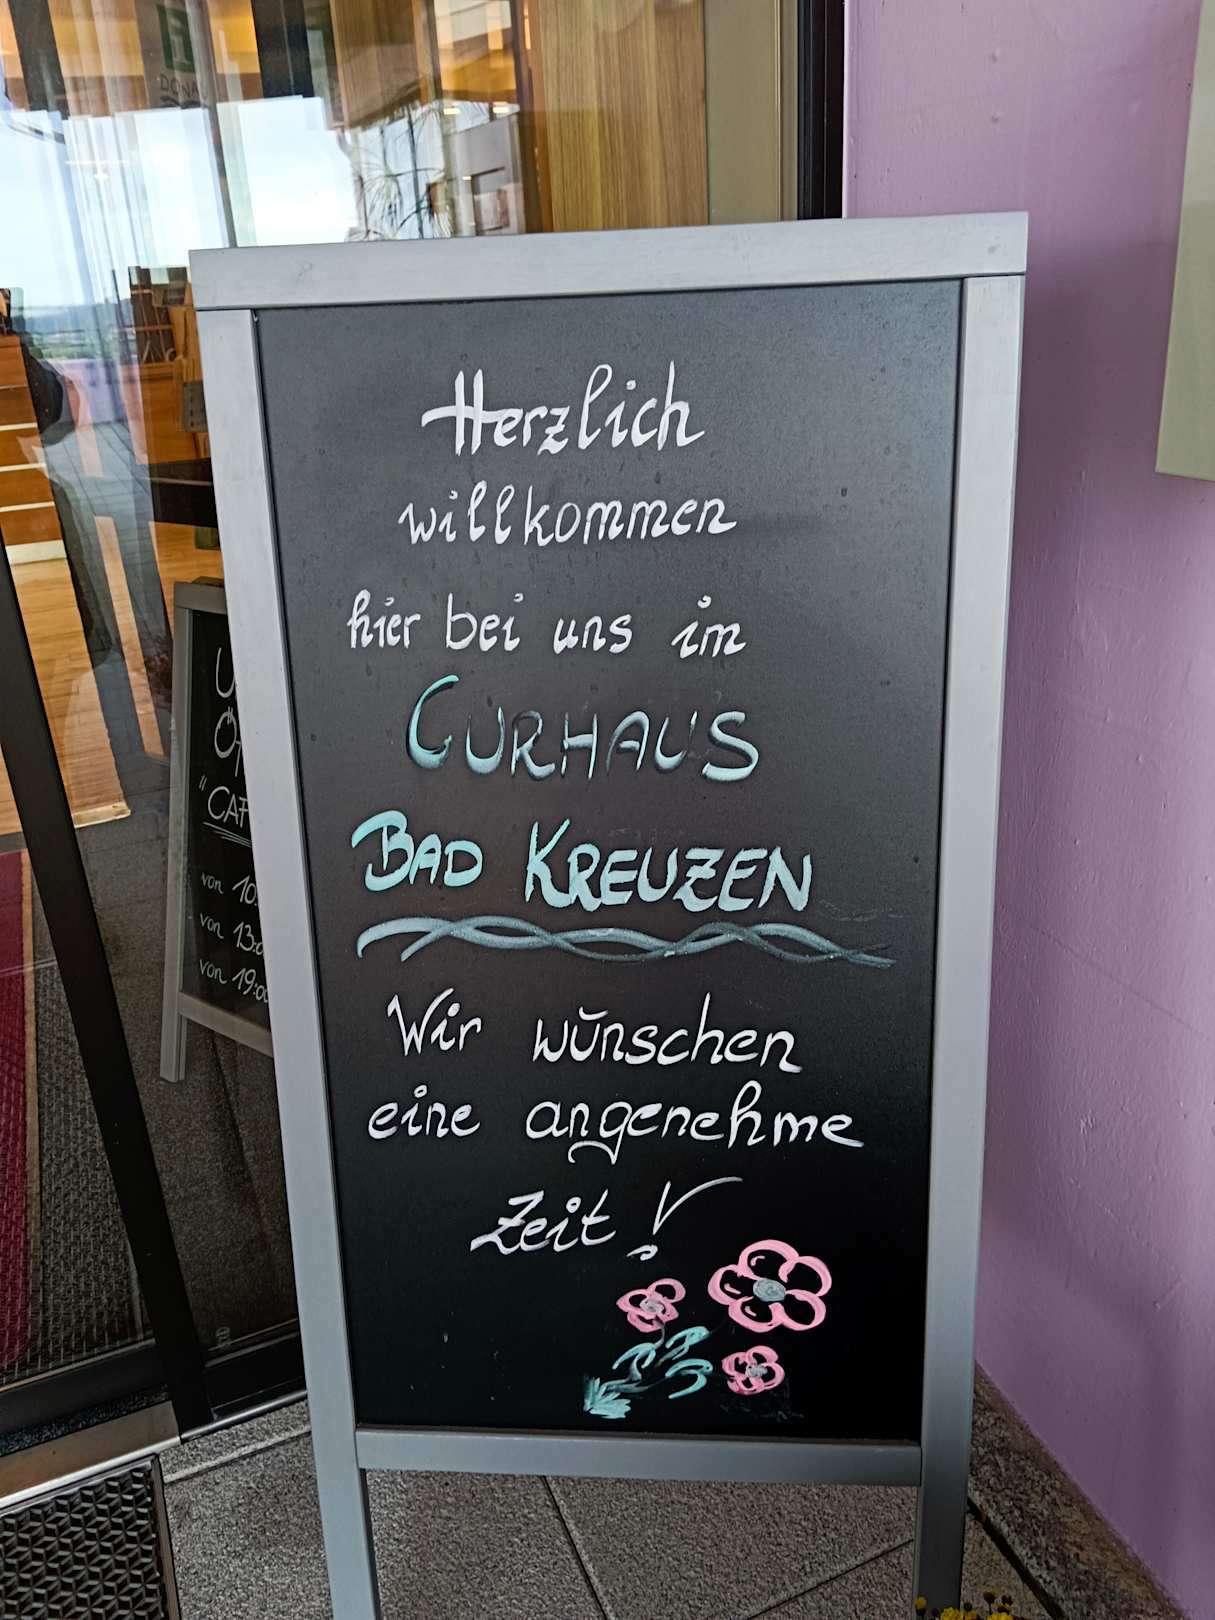 Herzlich
willkommen
hier bei uns im
CURHAUS
BAD KREUZEN
Wir wünschen
eine angenehme
Zeit!
von 10
von 13:0
von 19:00